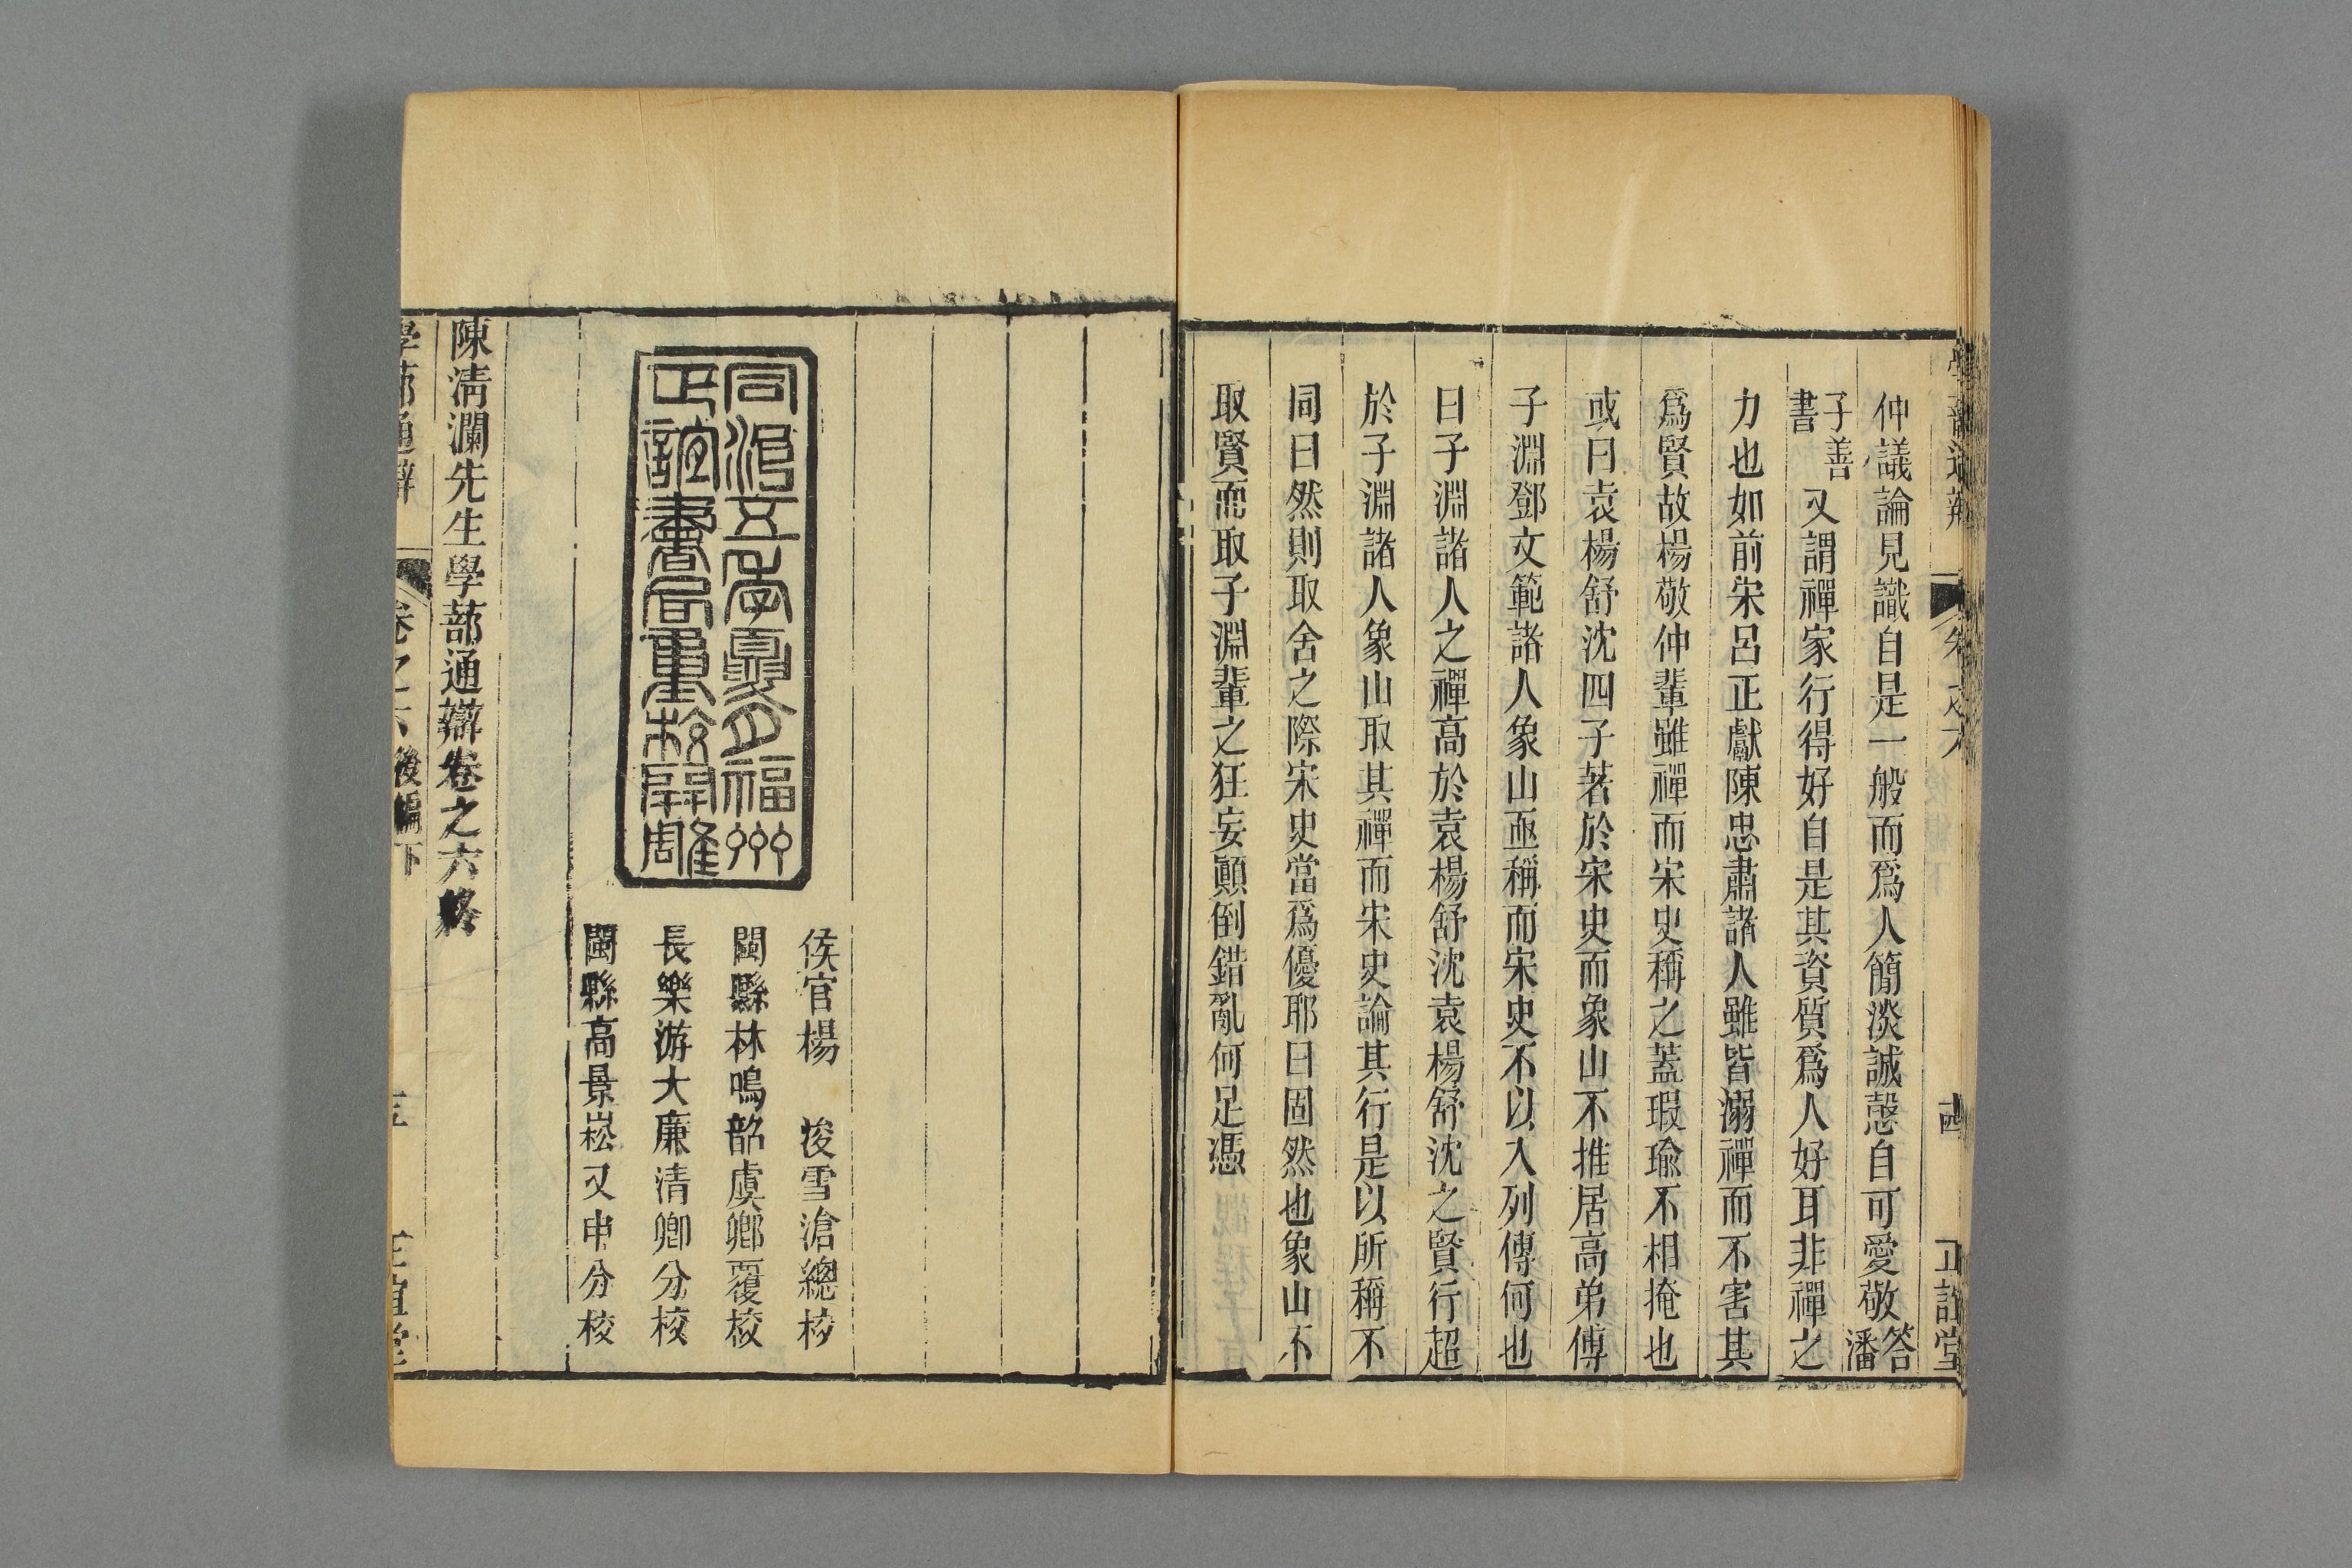 學蔀通辯 卷之六 西 正誼堂
仲議論見識自是一般而爲人簡淡誠慤自可愛敬答潘
子善書又謂禪家行得好自是其資質爲人好耳非禪之
力也如前宋呂正獻陳忠肅諸人雖皆溺禪而不害其
爲賢故楊敬仲輩雖禪而宋史稱之蓋瑕瑜不相掩也
或曰袁楊舒沈四子著於宋史而象山不推居高弟傅
子淵鄧文範諸人象山亟稱而宋史不以入列傳何也
曰子淵諸人之禪高於袁楊舒沈袁楊舒沈之賢行超
於子淵諸人象山取其禪而宋史論其行是以所稱不
同曰然則取舍之際宋史當爲優耶曰固然也象山不
取賢而取子淵輩之狂妄顚倒錯亂何足憑
侯官楊 浚雪滄總校
閩縣林鳴韶虞卿覆校
長樂游大廉清卿分校
閩縣高景崧又申分校
同治五年夏月福州
正誼書局重校開雕
陳淸瀾先生學蔀通辯卷之六終
學蔀通辯 卷之六 後編下 正誼堂